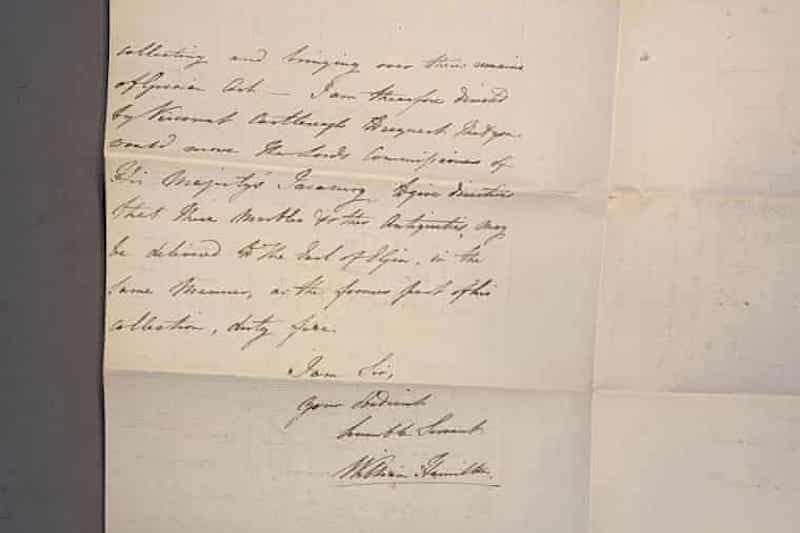 collecting and bringing over these remains
of Grecian Art — I am therefore directed
by Viscount Castlereagh to request that you
would move the Lords Commissioners of
His Majesty's Treasury to give directions
that these Marbles & other Antiquities, may
be delivered to the Earl of Elgin, in the
same Manner, as the former part of his
collection, duty free.
I am Sir,
your obedient
humble Servant
William Hamilton.